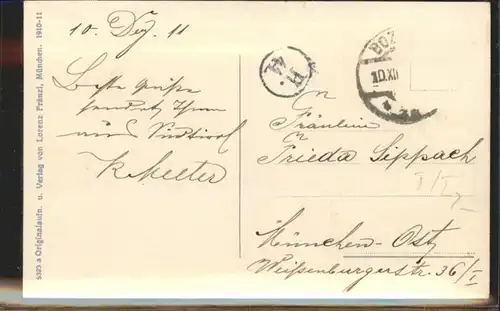 5323 a Originalaufn. u. Verlag von Lorenz Fränzl, München. 1910-11
10. Dez. 11
Beste Grüße
sendet Ihnen
aus Südtirol
BOZ
10.XII
An
Fräulein
Frieda Sippach
München-Ost
Weißenburgerstr. 36/I